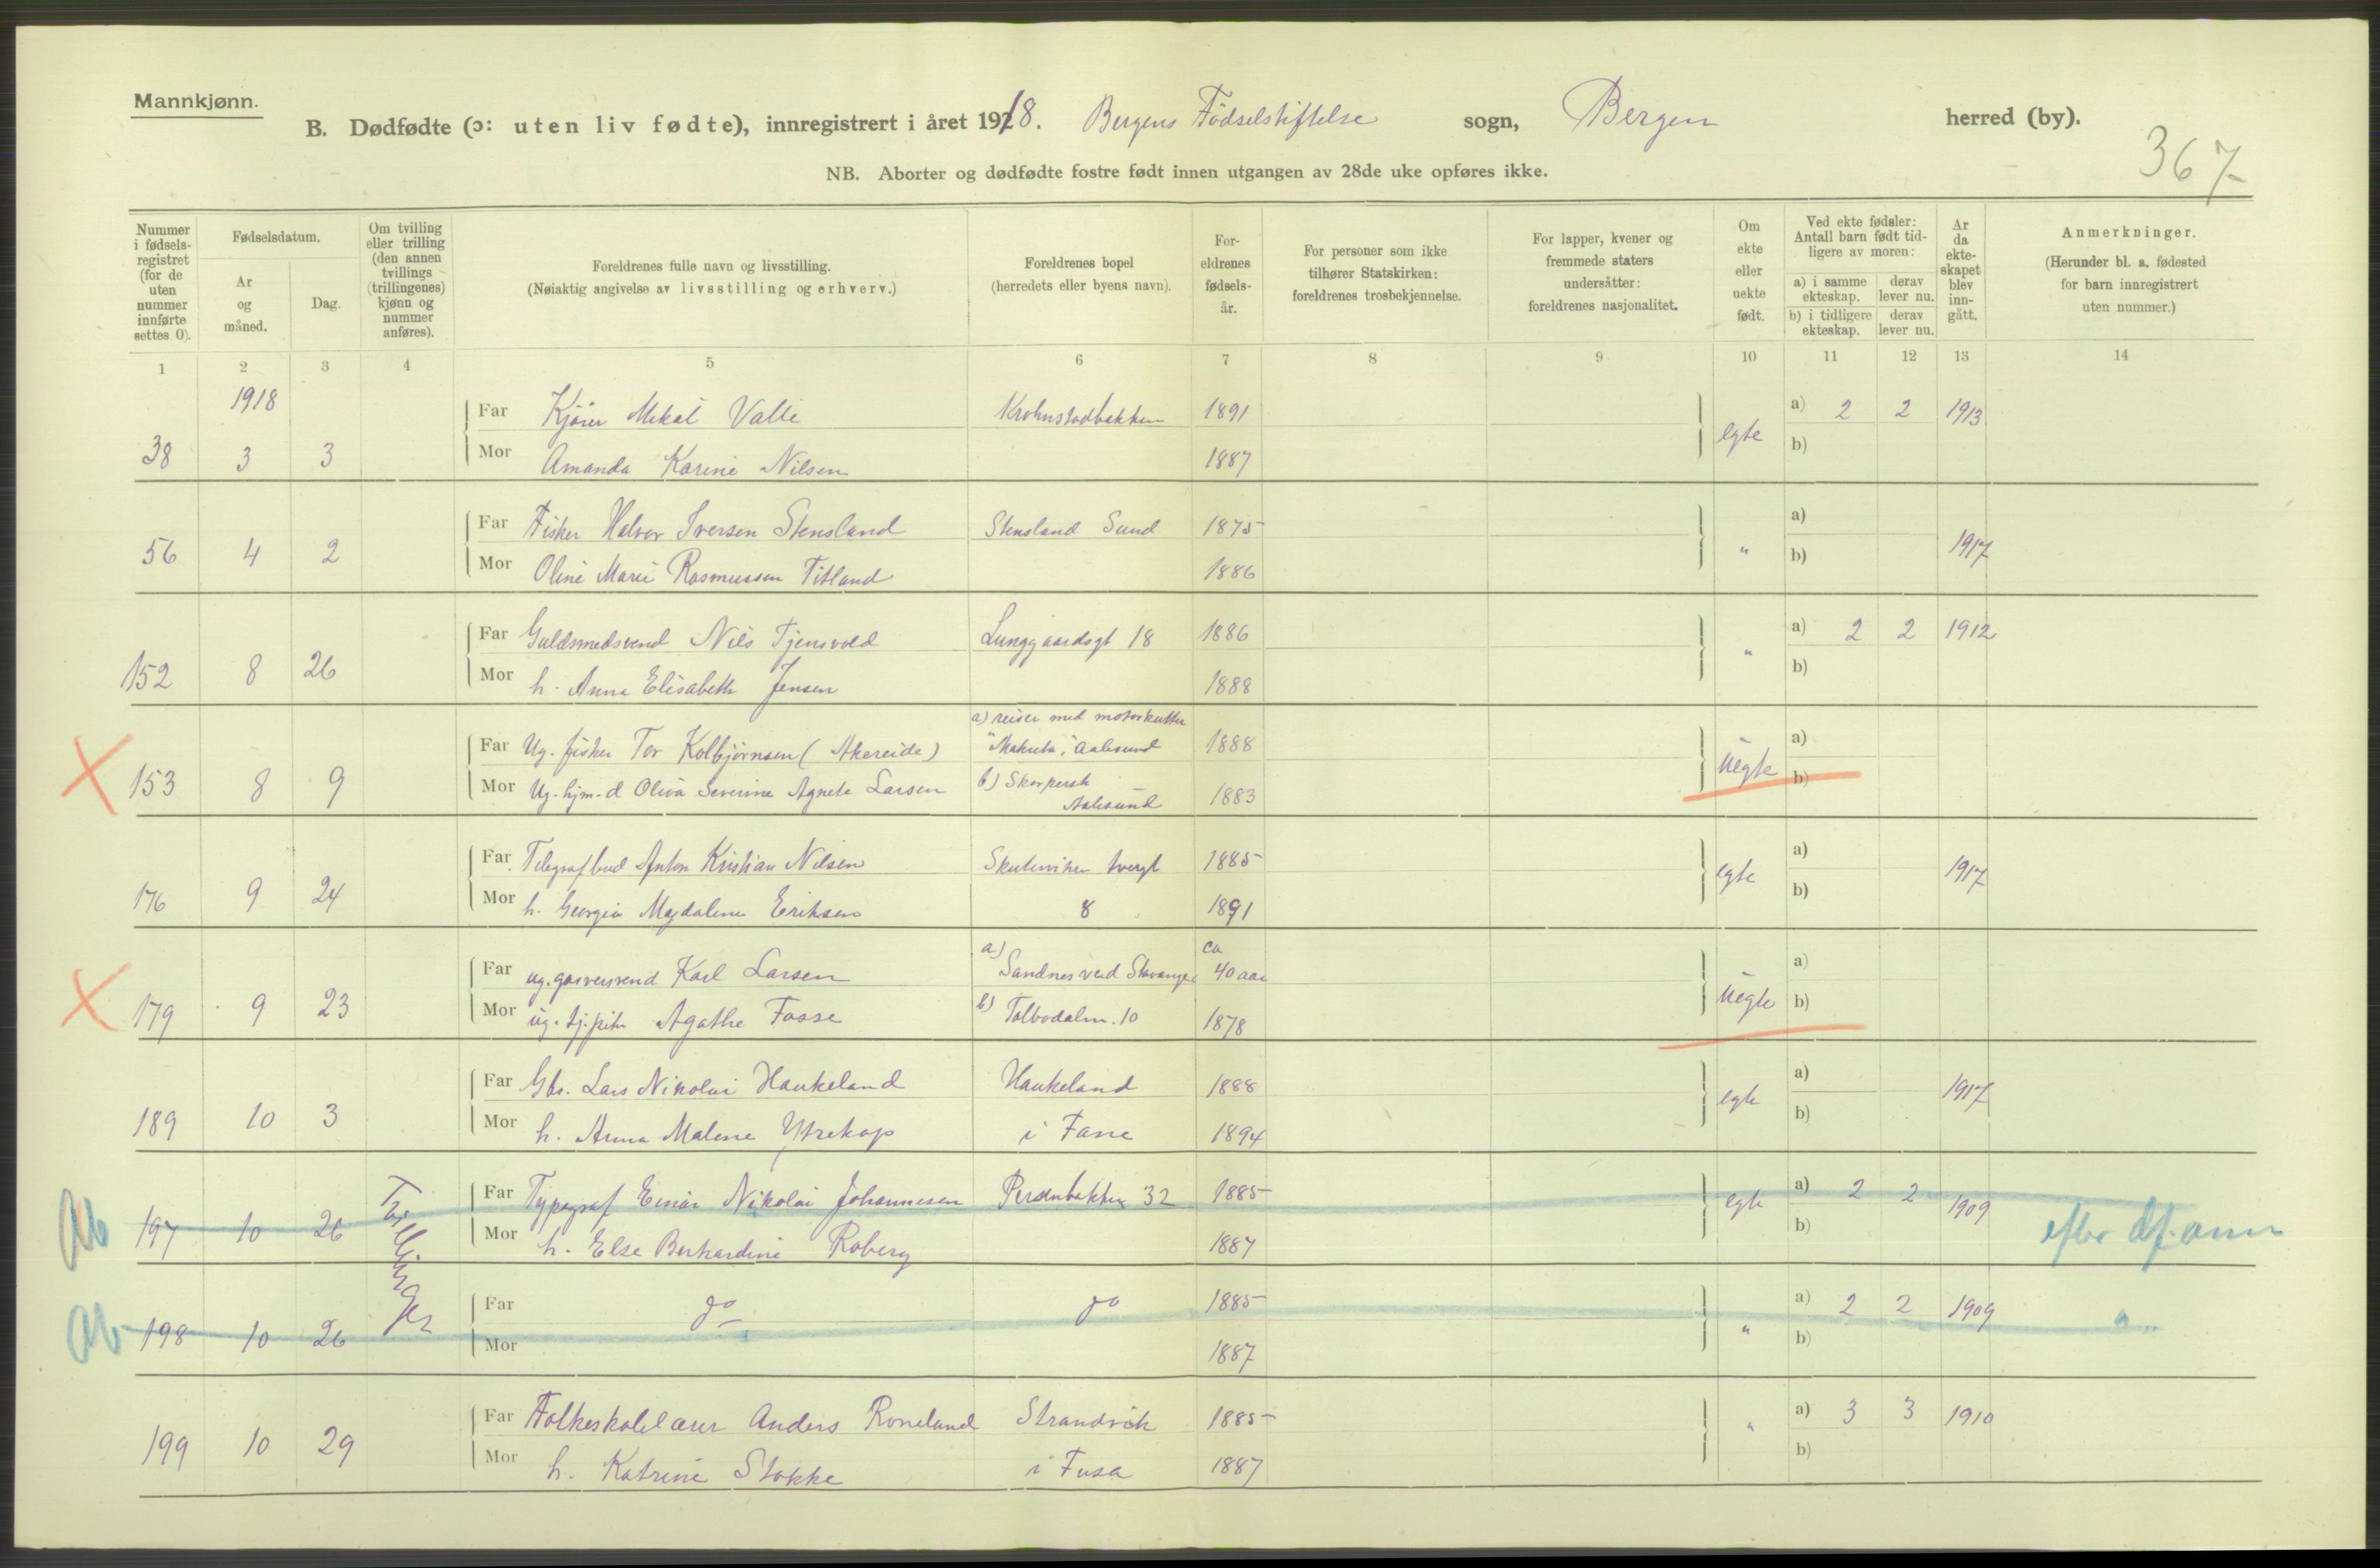 Mannkjønn.
B. Dødfødte (ɔ: uten liv fødte), innregistrert i året 1918. Bergens Födselstiftelse sogn, Bergen herred (by).
367
NB. Aborter og dødfødte fostre født innen utgangen av 28de uke opføres ikke.
Nummer i fødselsregistret (for de uten nummer innførte settes 0).
Fødselsdatum.
År og måned.
Dag.
Om tvilling eller trilling (den annen tvillings (trillingenes) kjønn og nummer anføres).
Foreldrenes fulle navn og livsstilling.
(Nøiaktig angivelse av livsstilling og erhverv.)
Foreldrenes bopel
(herredets eller byens navn).
Foreldrenes fødselsår.
For personer som ikke tilhører Statskirken: foreldrenes trosbekjennelse.
For lapper, kvener og fremmede staters undersåtter: foreldrenes nasjonalitet.
Om ekte eller uekte født.
Ved ekte fødsler: Antall barn født tidligere av moren:
a) i samme ekteskap. derav lever nu.
b) i tidligere ekteskap. derav lever nu.
År da ekteskapet blev inngått.
Anmerkninger.
(Herunder bl. a. fødested for barn innregistrert uten nummer.)
1 2 3 4 5 6 7 8 9 10 11 12 13 14
1918
Far Mekal Valle 1891 a) 2 2 1913
38 3 3 Mor Amanda Karine Nilsen 1887 egte b)
Far Fisker Halvor Iversen Stensland Stensland Sund 1875 a)
56 4 2 Mor Oline Marie Rasmussen Titland 1886 " b) 1917
Far Guldsmedsvend Nils Tjensvold Lunggaardsgt 18 1886 a) 2 2 1912
152 8 26 Mor h. Anna Elisabeth Jensen 1888 " b)
a) reiser med motorkutter
Far Ug. fisker Tor Kolbjörnsen (Akereide) Aalesund 1888 a)
153 8 9 Mor Ug. hjm. d Oliva Severine Agnete Larsen b) Aalesund 1883 Uegte b)
Far Telegrafbud Anton Kristian Nilsen Skuteviken tvergt 1885 a)
176 9 24 Mor h. Georgia Magdalene Eriksen 8 1891 egte b) 1917
Far ug. Karl Larsen a) Sandnes ved Stavanger ca 40 aar a)
179 9 23 Mor ug. Agathe Fosse b) Tolbodalm. 10 1878 Uegte b)
Far Gbr. Lars Nikolai Haukeland Haukeland 1888 a)
189 10 3 Mor h. Anna Malene i Fane 1894 egte b) 1917
Ab 197 10 26 Tvillinger
Far Typograf Einar Nikolai Johannesen 32 1885 a) 2 2
Mor h. Else Berhardine Roberg 1887 egte b) 1909
efter
Ab 198 10 26
Far do do 1885 a) 2 2 1909 "
Mor 1887 " b)
Far Folkeskolelærer Anders Roneland Strandvik 1885 a) 3 3 1910
199 10 29 Mor h. Katrine Stokke i Fusa 1887 " b)